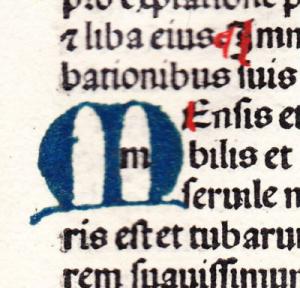 pro expiatione p
⁊ liba eius ¶ Imm
bationibus suis
MEnsis et
m bilis et
seruile n
ris est et tubarum
rem suauissimum